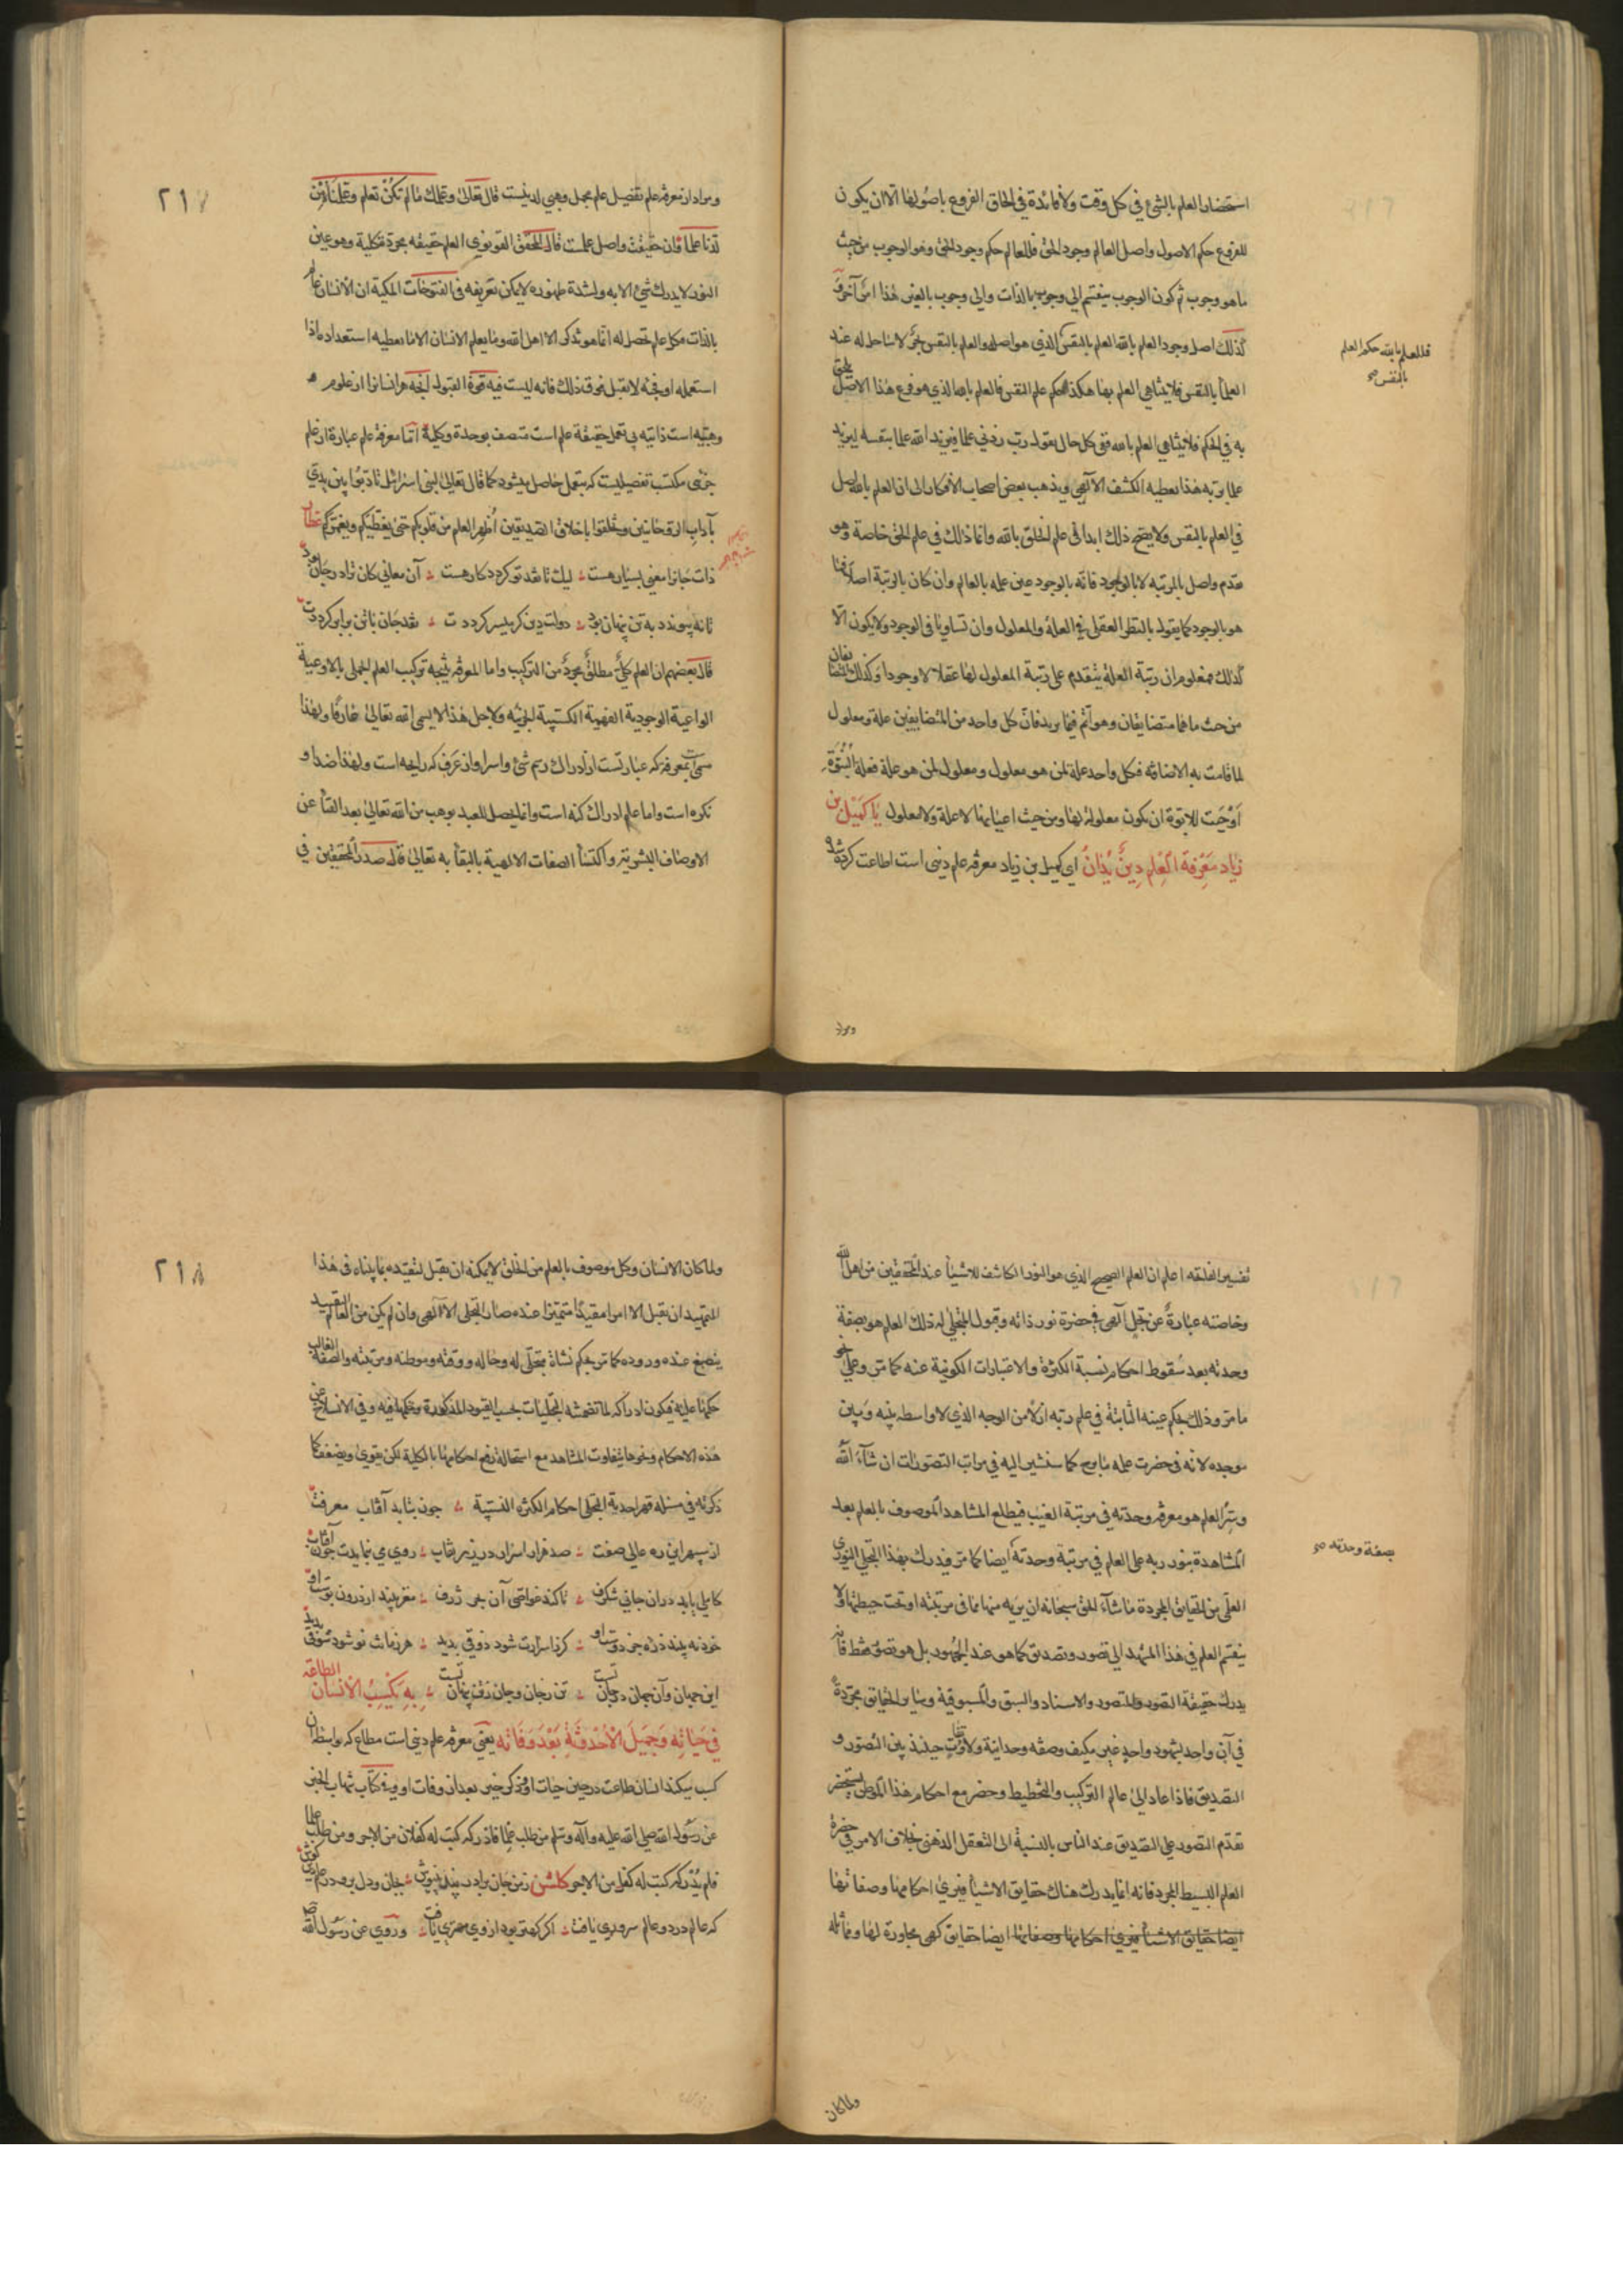 استحضار العلم بالشئ في كل وقت ولا فائدة في الحاق الفروع باصولها الا ان يكون
للفروع حكم الاصول واصل العالم وجود الحق فللعالم حكم وجود الحق وهو الوجوب من حيث
ما هو وجوب ثم كون الوجوب ينقسم الى وجوب بالذات والى وجوب بالغير هذا امر آخر و
كذلك اصل وجود العلم بالله العلم بالنفس الذي هو اصله والعلم بالنفس بحر لا ساحل له عند
العلماء بالنفس فلا يتناهى العلم بها هكذا حكم علم النفس فالعلم بالله الذي هو فرع هذا الاصل يلحق
به في الحكم فلا يتناهى العلم بالله ففي كل حال يقول رب زدني علما فيزيد الله علما بنفسه ليزيد
علما بربه هذا يعطيه الكشف الآلهي ويذهب بعض اصحاب الافكار الى ان العلم بالله اصل
في العلم بالنفس ولا يصح ذلك ابدا في علم الخلق بالله وانما ذلك في علم الحق خاصة وهو
مقدم واصل بالمرتبه لا بالوجود فانه بالوجود عين علمه بالعالم وان كان بالرتبة اصلا فما
هو بالوجود كما يقول بالنظر العقلي في العلة والمعلول وان تساويا في الوجود ولا يكون الا
كذلك فمعلوم ان رتبة العلة يتقدم على رتبة المعلول لها عقلا لا وجودا وكذلك المتضايفان
من حيث ما هما متضايفان وهو اتم فيما يريد فان كل واحد من المتضايفين علة ومعلول
لما قامت به الاضافة فكل واحد علة لمن هو معلول ومعلول لمن هو علة فعلة البنوة
اوجبت للابوة ان يكون معلولة لها ومن حيث اعيانهما لا علة ولا معلول يَا كُمَيْل بن
زياد مَعْرِفَة الْعِلمِ دِينٌ يُدَانُ اي كميل بن زياد معرفه علم ديني است اطاعت كرده شده
فللعلم بالله حكم العلم
بالنفس صح
ومراد
ومراد از معرفه علم تفصيل علم مجمل وهبي لدنيست قال تعالى وعلمك ما لم تكن تعلم وعلمناه من
لدنا علما وان حقيقت واصل علمست قال المحقق القونوي العلم حقيقه مجردة كلية وهو عين
النور لا يدرك شئ الا به ولشدة ظهوره لا يمكن تعريفه في الفتوحات المكية ان الانسان عالم
بالذات فكل علم يحصل له انما هو تذكر الا اهل الله وما يعلم الانسان الا ما يعطيه استعداده اذا
استعمله او بحثه لا يقبل فوق ذلك فانه ليست فيه قوة القبول آنچه هر انسانرا از علوم
وهبيه است ذاتيه بي تعمل حقيقة علم است متصف بوحدة وكلية اما معرفة علم عبارة از علم
جزئى مكتسب تفصيليست كه بتعمل حاصل ميشود كما قال تعالى لبني اسرائيل تادبوا بين يدي
بآداب الروحانيين وتخلقوا باخلاق الصديقين اُظهر العلم من قلوبكم حتى يغطيكم ويغمركم عطار
ذات جانرا معنى بسيار هست ؞ ليك تا نقد تو كردد كار هست ؞ آن معاني كان ترا در جان بود
تا نه پيوندد به تن پنهان بود ؞ دولت دين كر ميسر كرددت ؞ نقد جان با تن برابر كرددت
قال بعضهم ان العلم كلي مطلق مجرد من التركيب واما المعرفه نتيجه تركيب العلم الجملي بالاوعية
الواعية الوجودية الفهمية الكسبية الجزئيه ولاجل هذا لا يسمى الله تعالى عارفا ولهذا
سمى معرفه كه عبارتست از ادراك رسم شئ واسراو از عرف كه رايحه است ولهذا ضد او
نكره است واما علم ادراك كنه است وانما يحصل للعبد بوهب من الله تعالى بعد الفناء عن
الاوصاف البشرية واكتساء الصفات الالهية بالبقاء به تعالى قال صدر المحققين في
٢١٧
تفسير الفاتحه اعلم ان العلم الصحيح الذي هو النور الكاشف للاشياء عند المحققين من اهل الله
وخاصته عبارةٌ عن تجلٍ آلهي في حضرة نور ذاته وقبول المتجلى له ذلك العلم هو بصفة
وحدته بعد سقوط احكام نسبة الكثرة والاعتبارات الكونية عنه كما مر وعلى نحو
ما مر وذلك بحكم عينه الثابتة في علم ربه ازلا من الوجه الذي لا واسطه بينه وبين
موجده لانه في حضرت علمه ما برح كما سنشير اليه في مراتب التصورات ان شاء الله
وسر العلم هو معرفه وحدته في مرتبة الغيب فيطلع المشاهد الموصوف بالعلم بعد
المشاهدة بنور ربه على العلم في مرتبة وحدته ايضا كما مر فيدرك بهذا التجلي النوري
العلمي من الحقايق المجردة ما شاء الحق سبحانه ان يريه منها مما في مرتبته او تحت حيطتها ولا
ينقسم العلم في هذا المشهد الى تصور وتصديق كما هو عند الجمهور بل هو تصور فقط فانه
يدرك حقيقة التصور والمتصور والاسناد والسبق والمسبوقية وساير الحقايق مجردة
في آن واحد بشهود واحد غير مكيف وصفه وحدانية ولا تفاوت حينئذ بين التصور و
التصديق فاذا عاد الى عالم التركيب والتخطيط وحضر مع احكام هذا الموطن يستحضر
تقدم التصور على التصديق عند الناس بالنسبة الى التعقل الذهني بخلاف الامر في حضرة
العلم البسيط المجرد فانه انما يدرك هناك حقايق الاشياء فيرى احكامها وصفاتها
ايضا حقايق الاشياء فيرى احكامها وصفاتها ايضا حقايق كهي مجاورة لها ومماثله
بصفة وحدته صح
ولما كان
ولما كان الانسان وكل موصوف بالعلم من الخلق لا يمكنه ان يقبل لتقيده بما بيناه في هذا
التمهيد ان يقبل الا امرا مقيدا متميزا عنده صار التجلي الآلهي وان لم يكن من العالم التقييد
ينصبغ عند وروده كما مر بحكم نشاة متجلى له وحاله ووقته وموطنه ومرتبته والصفه الغالب
حكمها عليه فيكون ادراكه لما تضمنته التجليات بحسب القيود المذكورة وحكمها فيه وفي الانسلاخ عن
هذه الاحكام ونحوها يتفاوت المشاهد مع استحاله رفع احكامها بالكلية لكن يقوى ويضعف كما
ذكرته في مسئله قهر احدية التجلي احكام الكثره النسبية ؞ چون بتابد آفتاب معرفت
از سپهر اين ره عالي صفت ؞ صد هزار اسرار در زير نقاب ؞ روي مي نمايدت چون آفتاب
كاملي بايد دران جاني شكرف ؞ تا كند غواصي آن بحر ژرف ؞ مغز بيند از درون پوست او
خود نه بيند ذره جز دوست او ؞ كر ز اسرارت شود ذوقي پديد ؞ هر زمانت نو شود شوقي پديد
اين جهان وآن جهان در جان تست ؞ تن زجان وجان زتن پنهان تست ؞ بِهِ يَكْسِبُ الْاِنْسَانُ الطاعه
فِي حَيَاتِه وَجَمِيلَ الْاُحْدُوثَةِ بَعْدَ وَفَاتِه يعني معرفه علم ديني است مطاع كه بواسطه آن
كسب ميكند انسان طاعت در حين حيات او وذكر خير بعد از وفات او وفي كتاب شهاب الخبر
عن رسول الله صلى الله عليه وآله وسلم من طلب علما فادركه كتب له كفلان من الاجر ومن طلب علما
فلم يدركه كتب له كفل من الاجر
كه عالم در دو عالم سروري يافت ؞ اكر كهتر بود از وي مهتري يافت ؞ وروي عن رسول الله
٢١٨